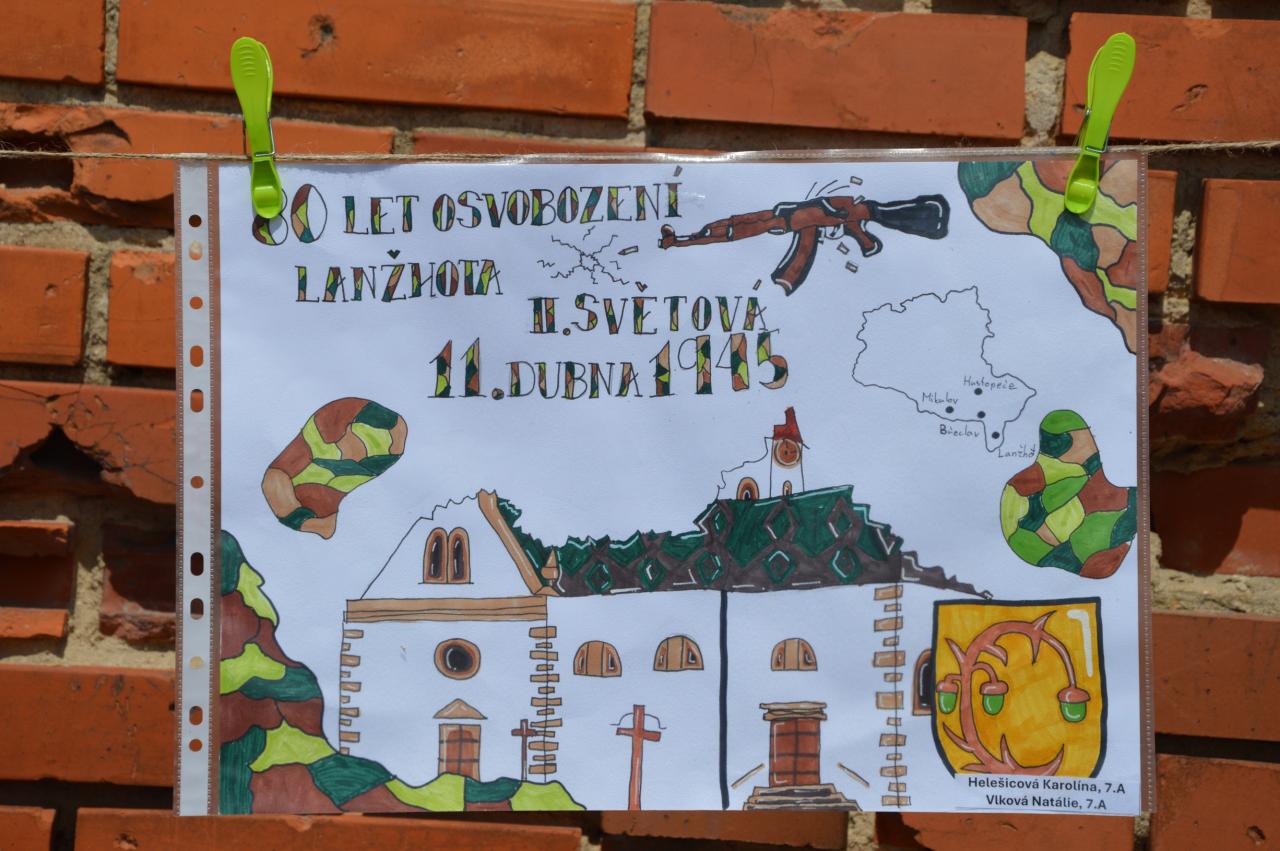 80 LET OSVOBOZENÍ
LANŽHOTA
II. SVĚTOVÁ
11. DUBNA 1945
Hustopeče
Mikulov
Břeclav
Lanžhot
Helešicová Karolína, 7.A
Vlková Natálie, 7.A